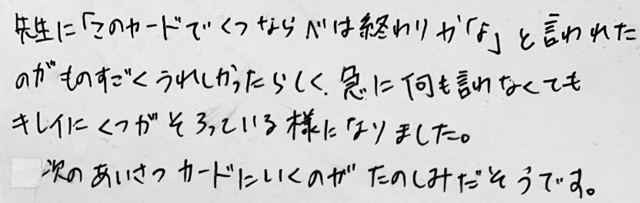 先生に「このカードでくつならべは終わりかな」と言われた
のがものすごくうれしかったらしく、急に何も言れなくても
キレイにくつがそろっている様になりました。
次のあいさつカードにいくのがたのしみだそうです。